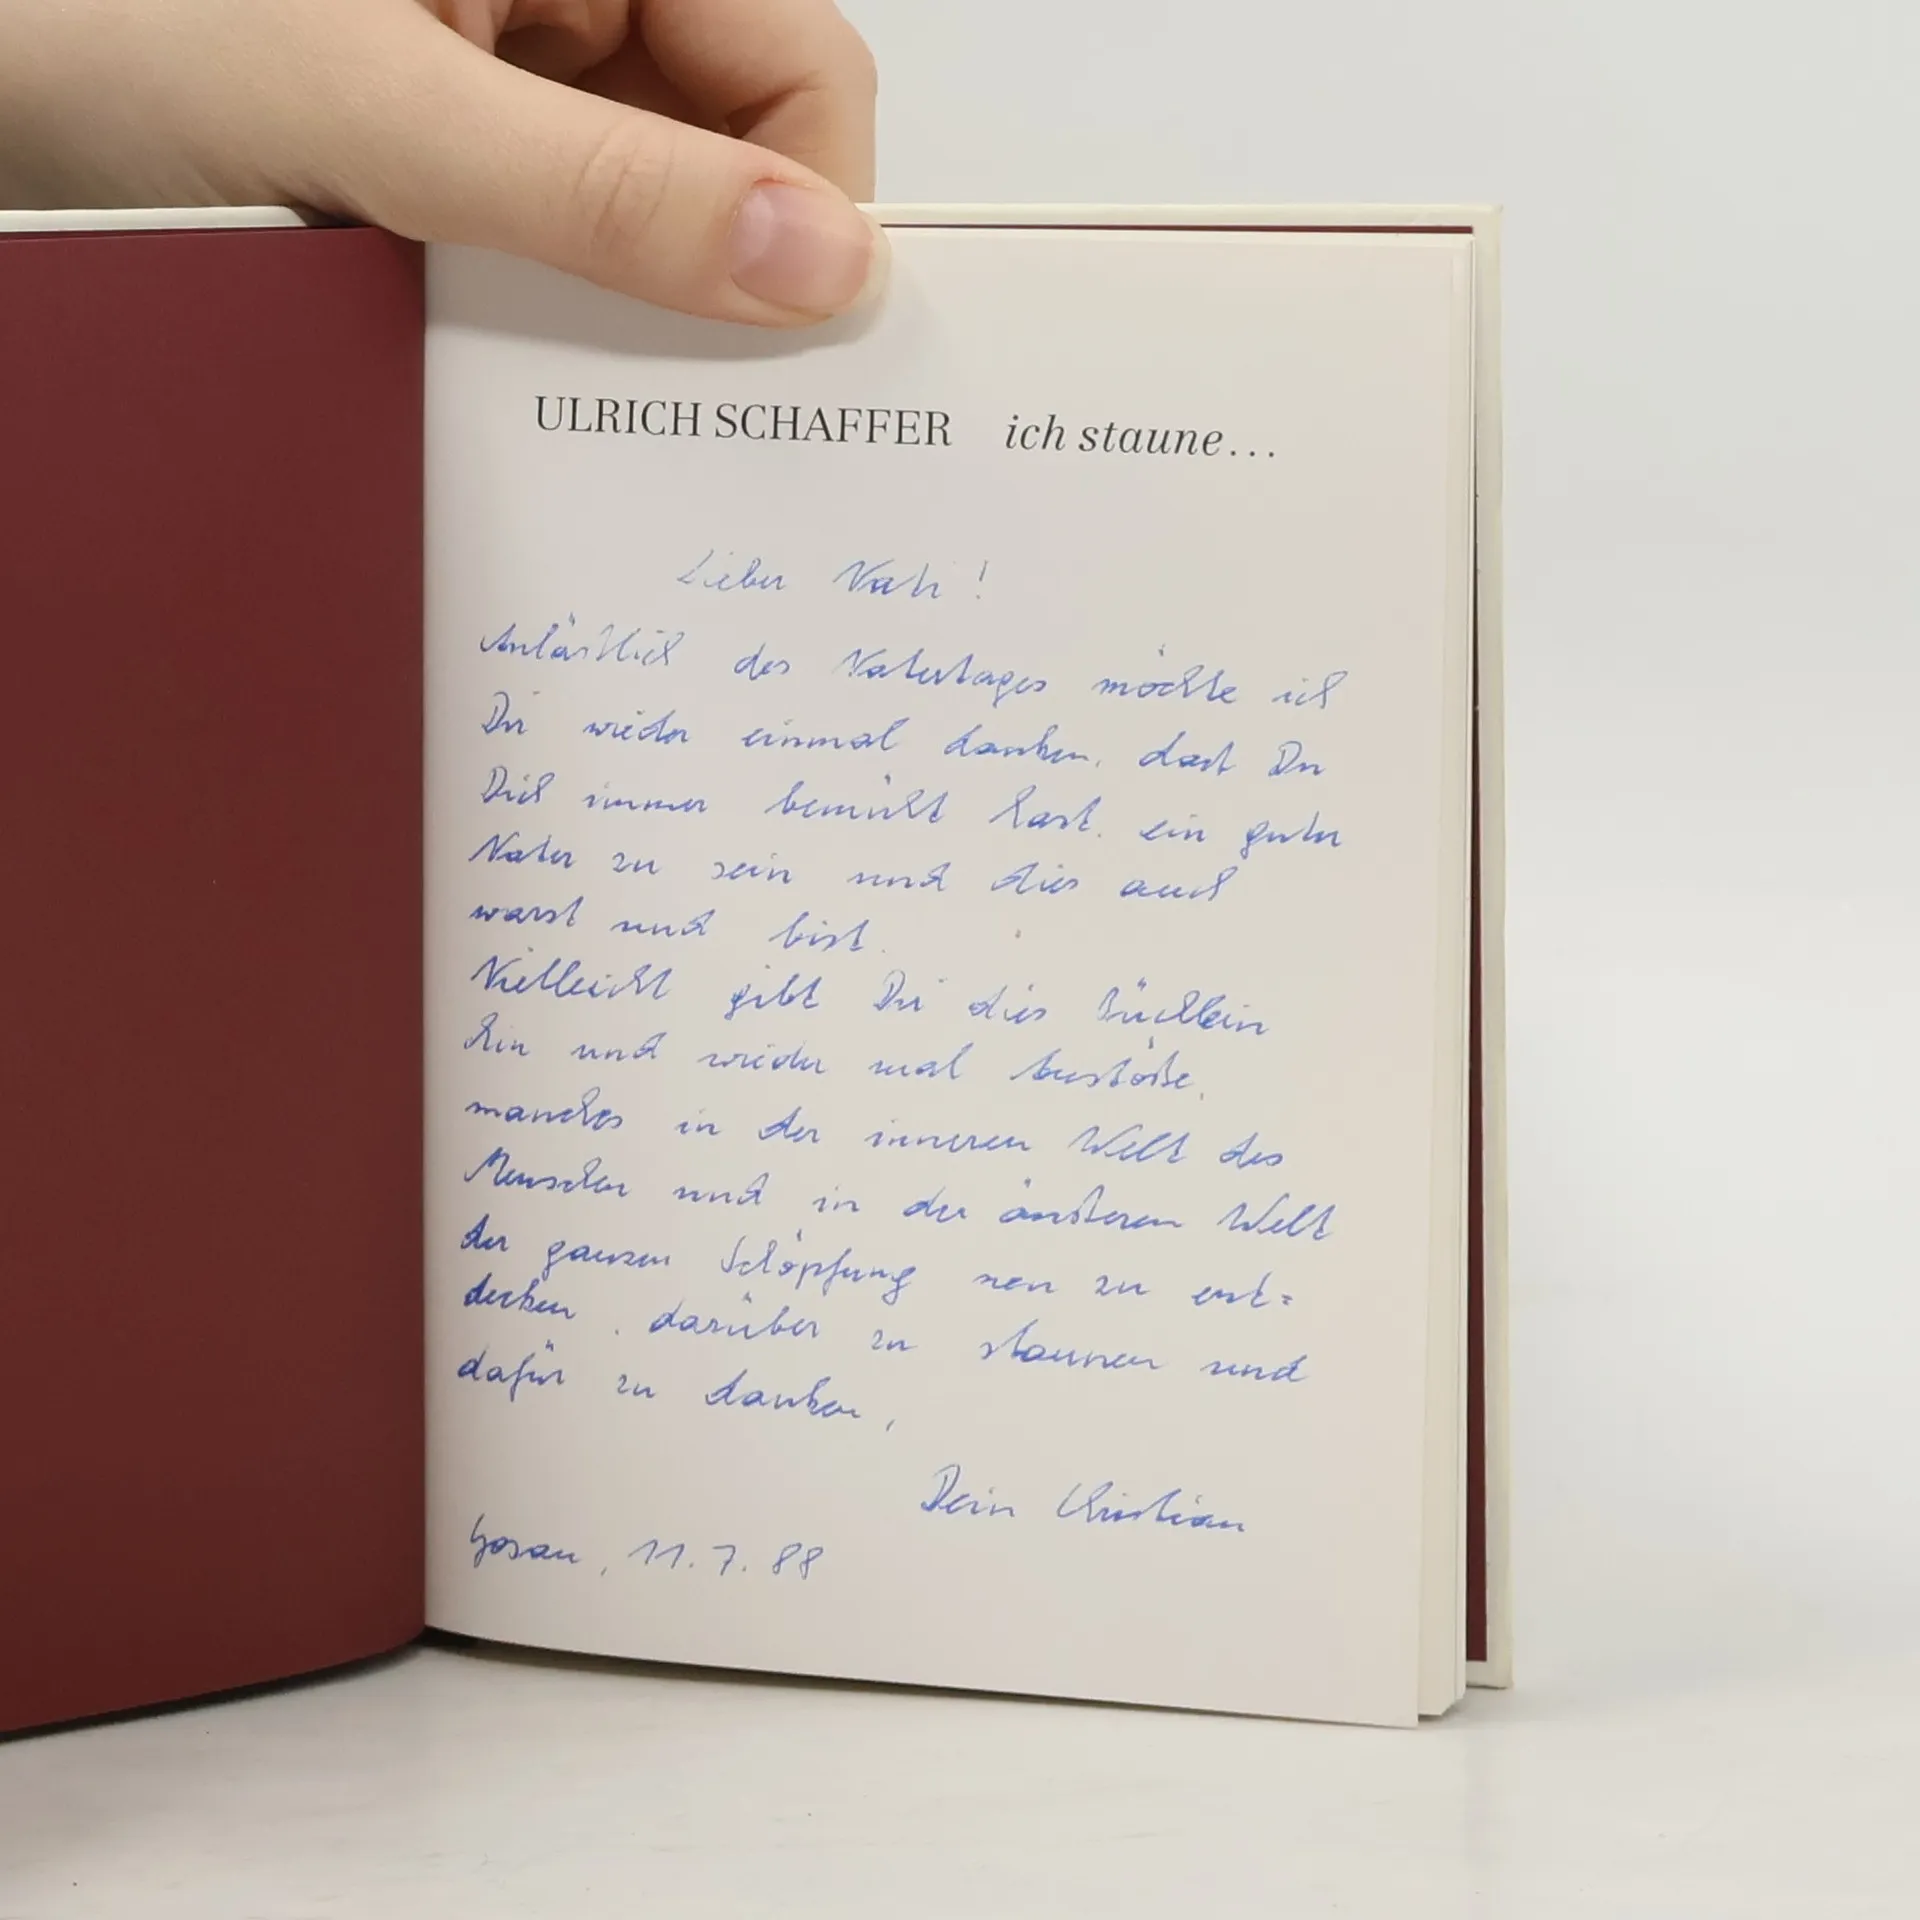 ULRICH SCHAFFER ich staune...
Lieber Vati!
Anläßlich des Vatertages möchte ich
Dir wieder einmal danken, daß Du
Dich immer bemüht hast, ein guter
Vater zu sein und dies auch
warst und bist.
Vielleicht gibt Dir dies Büchlein
hin und wieder mal Anstöße,
manches in der inneren Welt des
Menschen und in der äußeren Welt
der ganzen Schöpfung neu zu ent=
decken, darüber zu staunen und
dafür zu danken,
Dein Christian
Gosau, 11.7.88